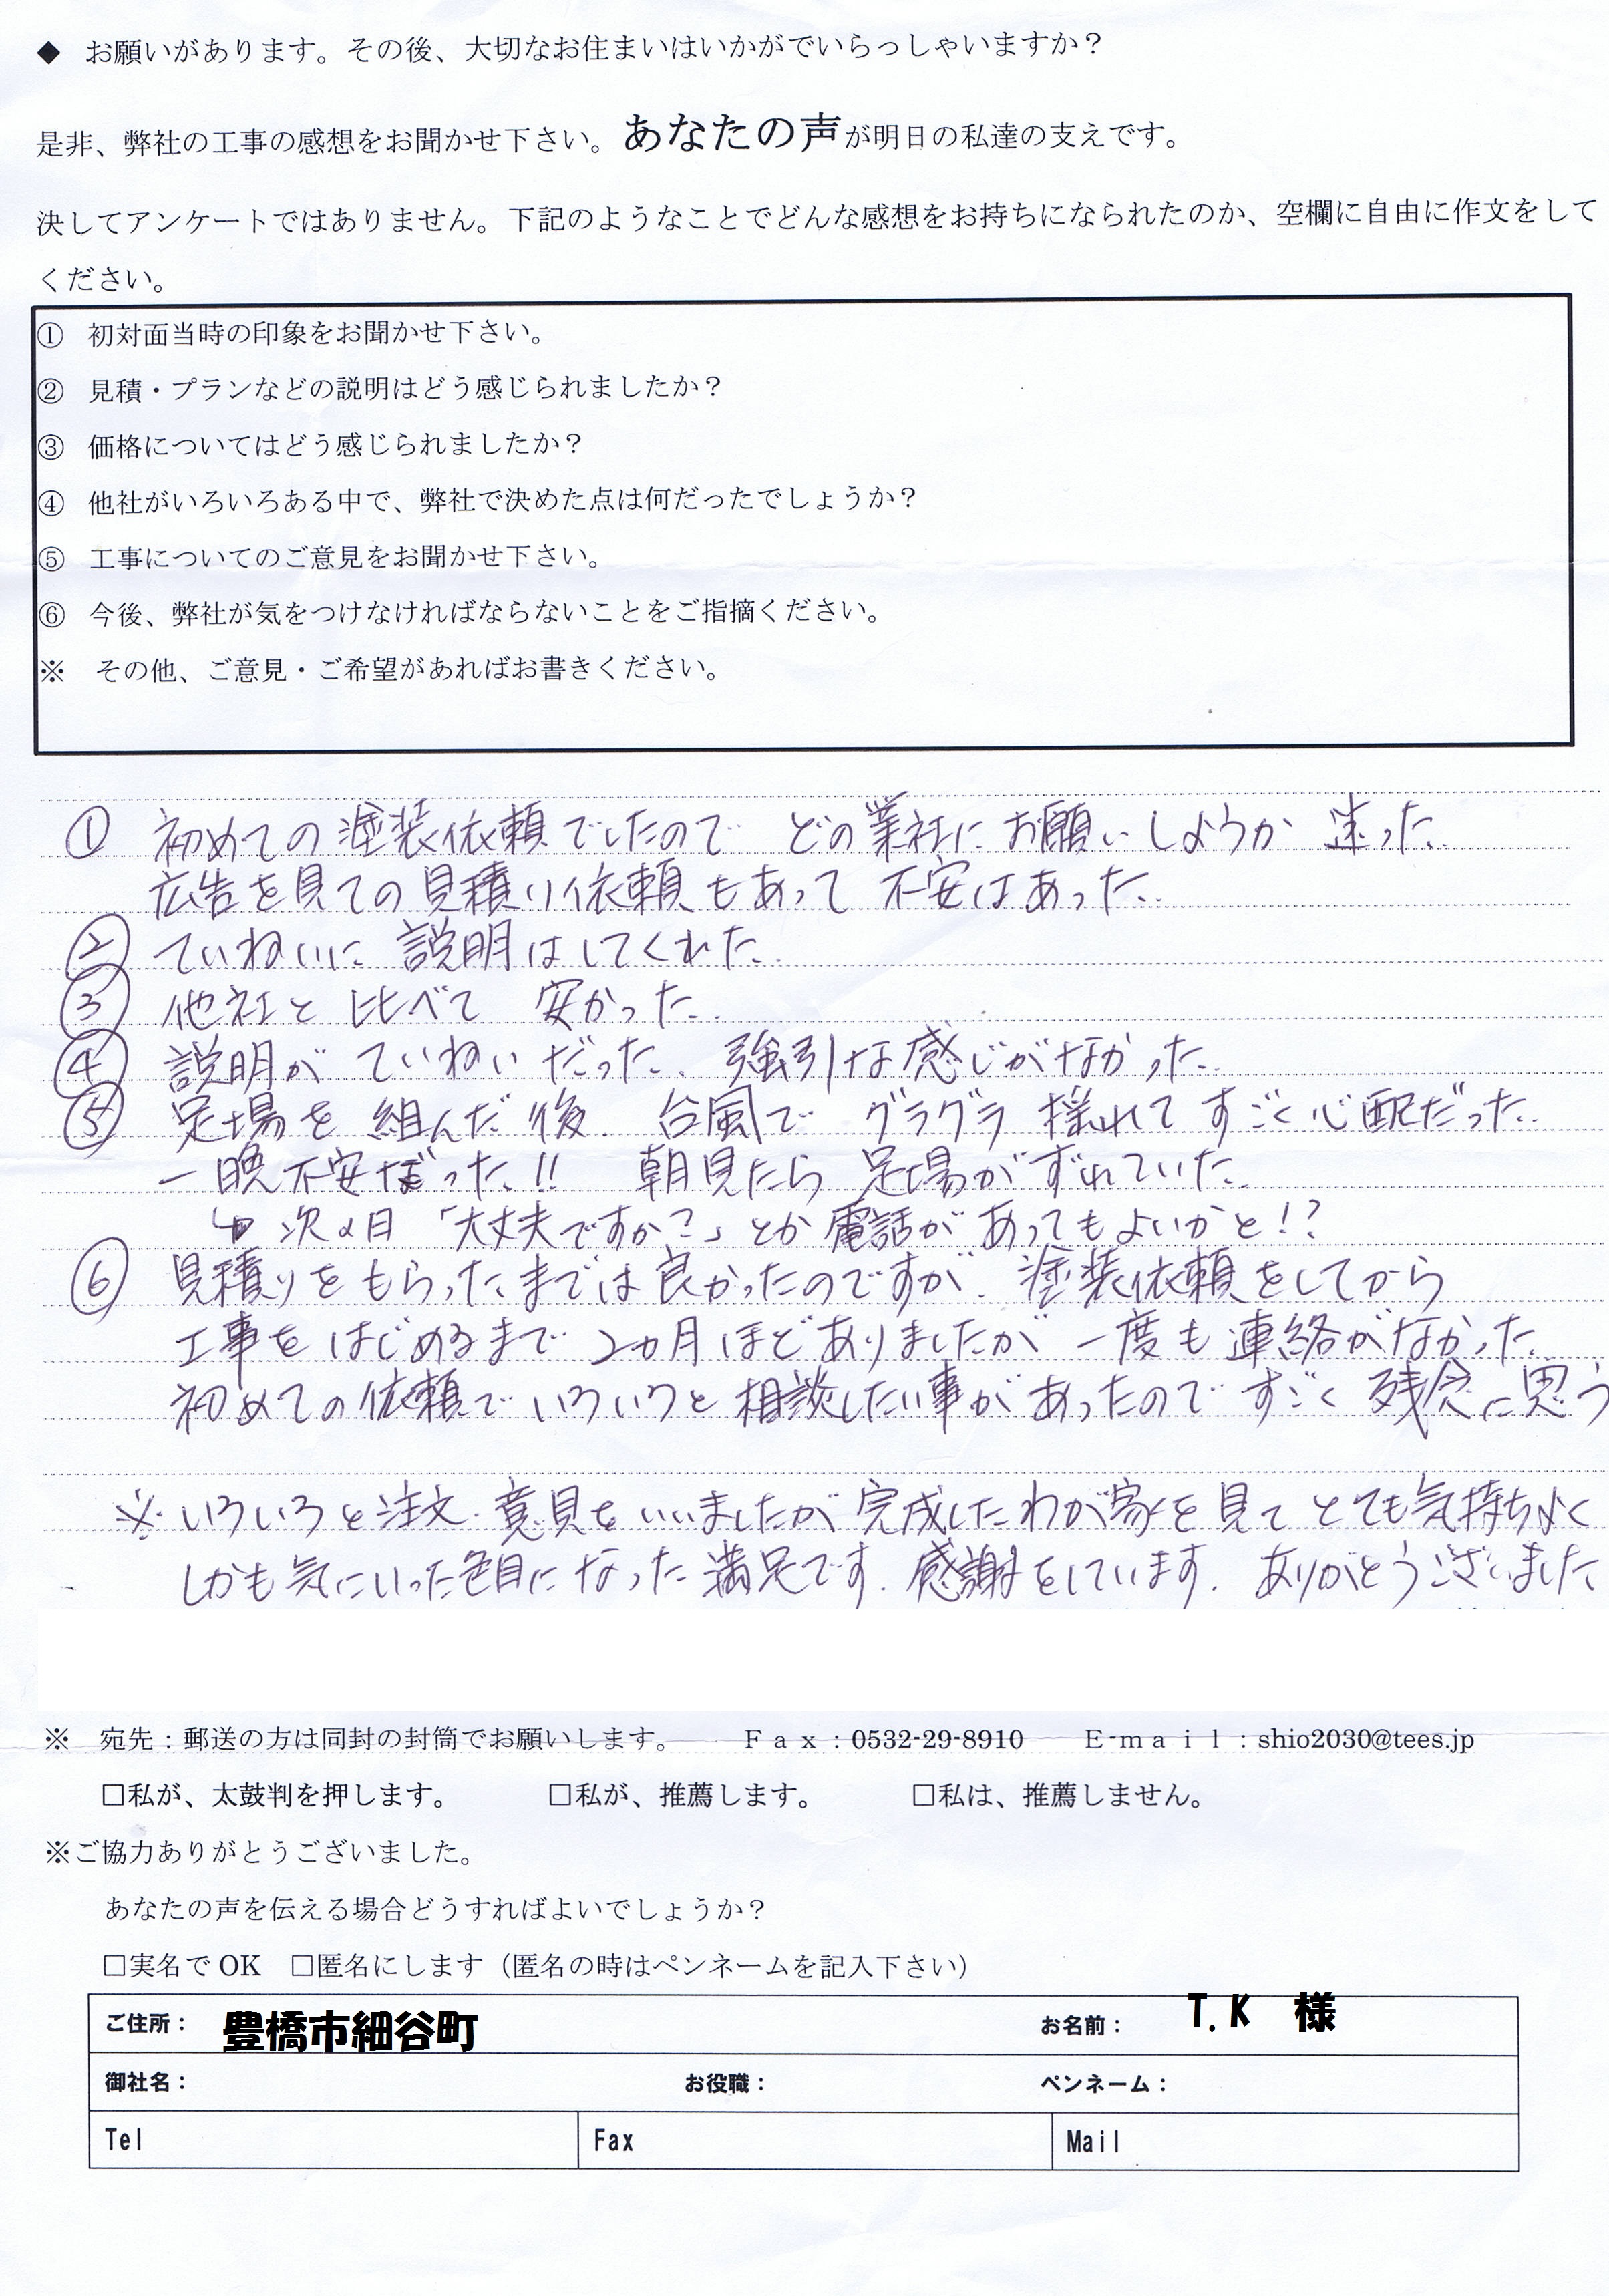 ◆ お願いがあります。その後、大切なお住まいはいかがでいらっしゃいますか？
是非、弊社の工事の感想をお聞かせ下さい。あなたの声が明日の私達の支えです。
決してアンケートではありません。下記のようなことでどんな感想をお持ちになられたのか、空欄に自由に作文をして
ください。
① 初対面当時の印象をお聞かせ下さい。
② 見積・プランなどの説明はどう感じられましたか？
③ 価格についてはどう感じられましたか？
④ 他社がいろいろある中で、弊社で決めた点は何だったでしょうか？
⑤ 工事についてのご意見をお聞かせ下さい。
⑥ 今後、弊社が気をつけなければならないことをご指摘ください。
※ その他、ご意見・ご希望があればお書きください。
① 初めての塗装依頼でしたので どの業社にお願いしようか 迷った.
広告を見ての見積り依頼もあって 不安はあった.
② ていねいに 説明はしてくれた.
③ 他社と 比べて 安かった.
④ 説明が ていねいだった. 強引な感じがなかった.
⑤ 足場を 組んだ後. 台風で グラグラ 揺れて すごく心配だった.
一晩不安だった!! 朝見たら 足場がずれていた.
↳ 次の日 「大丈夫ですか?」とか 電話が あってもよいかと!?
⑥ 見積りを もらったまでは良かったのですが. 塗装依頼をしてから
工事を はじめるまで 2ヵ月ほどありましたが 一度も 連絡がなかった.
初めての依頼で いろいろと 相談したい事が あったので すごく 残念に思う
※ いろいろと注文・意見をいいましたが 完成したわが家を見て とても気持ちよく
しかも気にいった色目になった 満足です. 感謝をしています. ありがとうございました
※ 宛先：郵送の方は同封の封筒でお願いします。 Ｆａｘ：0532-29-8910 Ｅ-ｍａｉｌ：shio2030@tees.jp
□私が、太鼓判を押します。 □私が、推薦します。 □私は、推薦しません。
※ご協力ありがとうございました。
あなたの声を伝える場合どうすればよいでしょうか？
□実名で OK □匿名にします（匿名の時はペンネームを記入下さい）
ご住所： 豊橋市細谷町 お名前： T.K 様
御社名： お役職： ペンネーム：
Tel Fax Mail